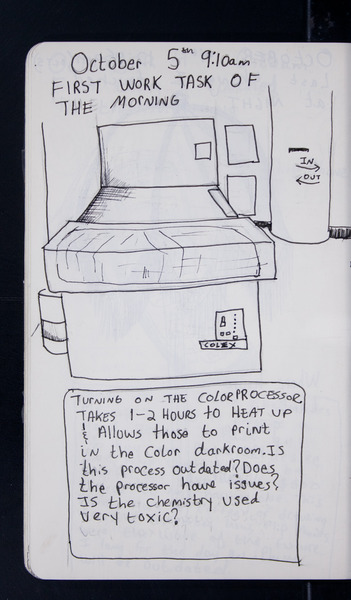 October 5th 9:10am
FIRST WORK TASK OF
THE MORNING
IN
OUT
COLEX
TURNING ON THE COLORPROCESSOR
TAKES 1-2 HOURS TO HEAT UP
& Allows those to print
in the Color darkroom. Is
this process outdated? Does
the processor have issues?
Is the chemistry used
very toxic?